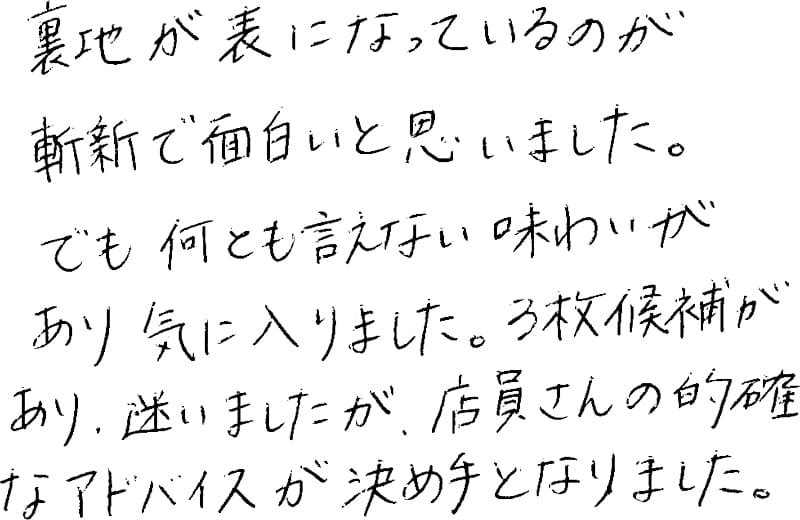 裏地が表になっているのが
斬新で面白いと思いました。
でも何とも言えない味わいが
あり気に入りました。3枚候補が
あり、迷いましたが、店員さんの的確
なアドバイスが決め手となりました。